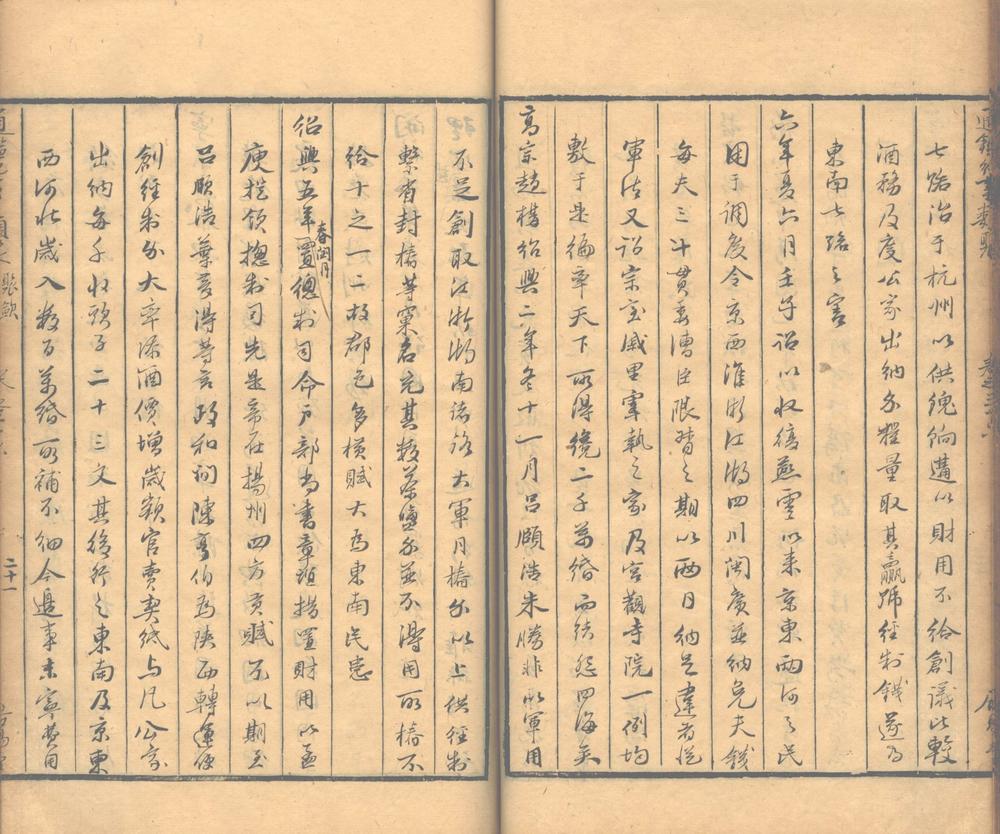 七路治于杭州以供餽餉遘以財用不給創議比較
酒務及度公家出納分糧量取其贏號經制錢遂為
東南七路之害
六年夏六月壬子詔以收復燕雲以來京東兩河之民
用于調度令京西淮浙江湖四川閩廣並納免夫錢
每夫三十貫委漕臣限督之期以兩日納足違者從
軍法又詔宗室戚里宰執之家及宮觀寺院一例均
敷于是徧率天下所得纔二千萬緡而結怨四海矣
高宗趙構紹興二年冬十一月呂頤浩朱勝非以軍用
不足創取江浙湖南諸路大軍月樁錢以上供經制
繫省封樁等窠名充其數茶鹽錢並不得用所樁不
給十之一二故郡邑多橫賦大為東南民患
紹興五年春閏月置總制司命戶部尚書章誼措置財用以孟
庾提領總制司先是帝在揚州四方貢賦不以期至
呂頤浩葉夢得等言政和間陳亨伯為陝西轉運使
創經制錢大率添酒價增歲額官賣契紙與凡公家
出納每千收頭子二十三文其後行之東南及京東
西河北歲入數百萬緡所補不細今邊事未寧費用
二十一